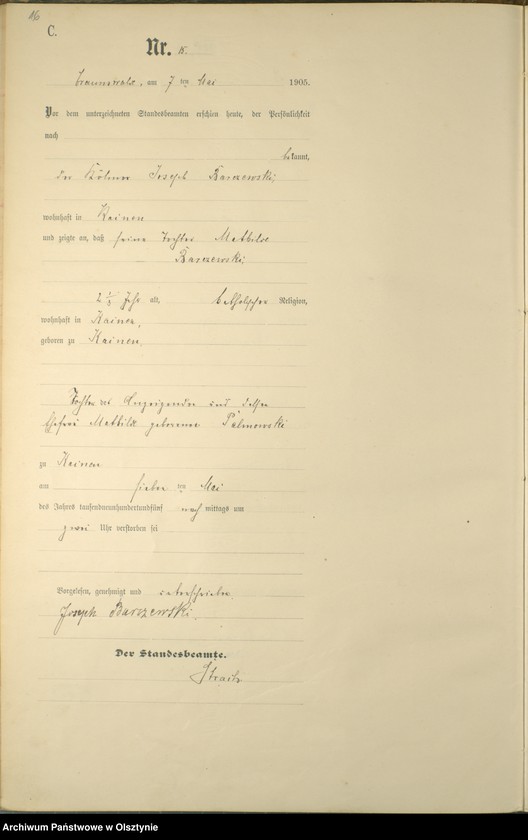 C.
Nr. 15.
Braunswalde, am 7 ten Mai 1905.
Vor dem unterzeichneten Standesbeamten erschien heute, der Persönlichkeit
nach
bekannt,
der Kölmer Joseph Barczewski,
wohnhaft in Kainen
und zeigte an, daß seine Tochter Mathilde
Barczewski,
Jahr alt, katholischer Religion,
wohnhaft in Kainen,
geboren zu Kainen,
Tochter des Anzeigenden und dessen
Ehefrau Mathilde geborene Palmowski
zu Kainen
am sieben ten Mai
des Jahres tausendneunhundertundfünf nach mittags um
zwei Uhr verstorben sei
Vorgelesen, genehmigt und unterschrieben
Joseph Barczewski.
Der Standesbeamte.
Archiwum Państwowe w Olsztynie